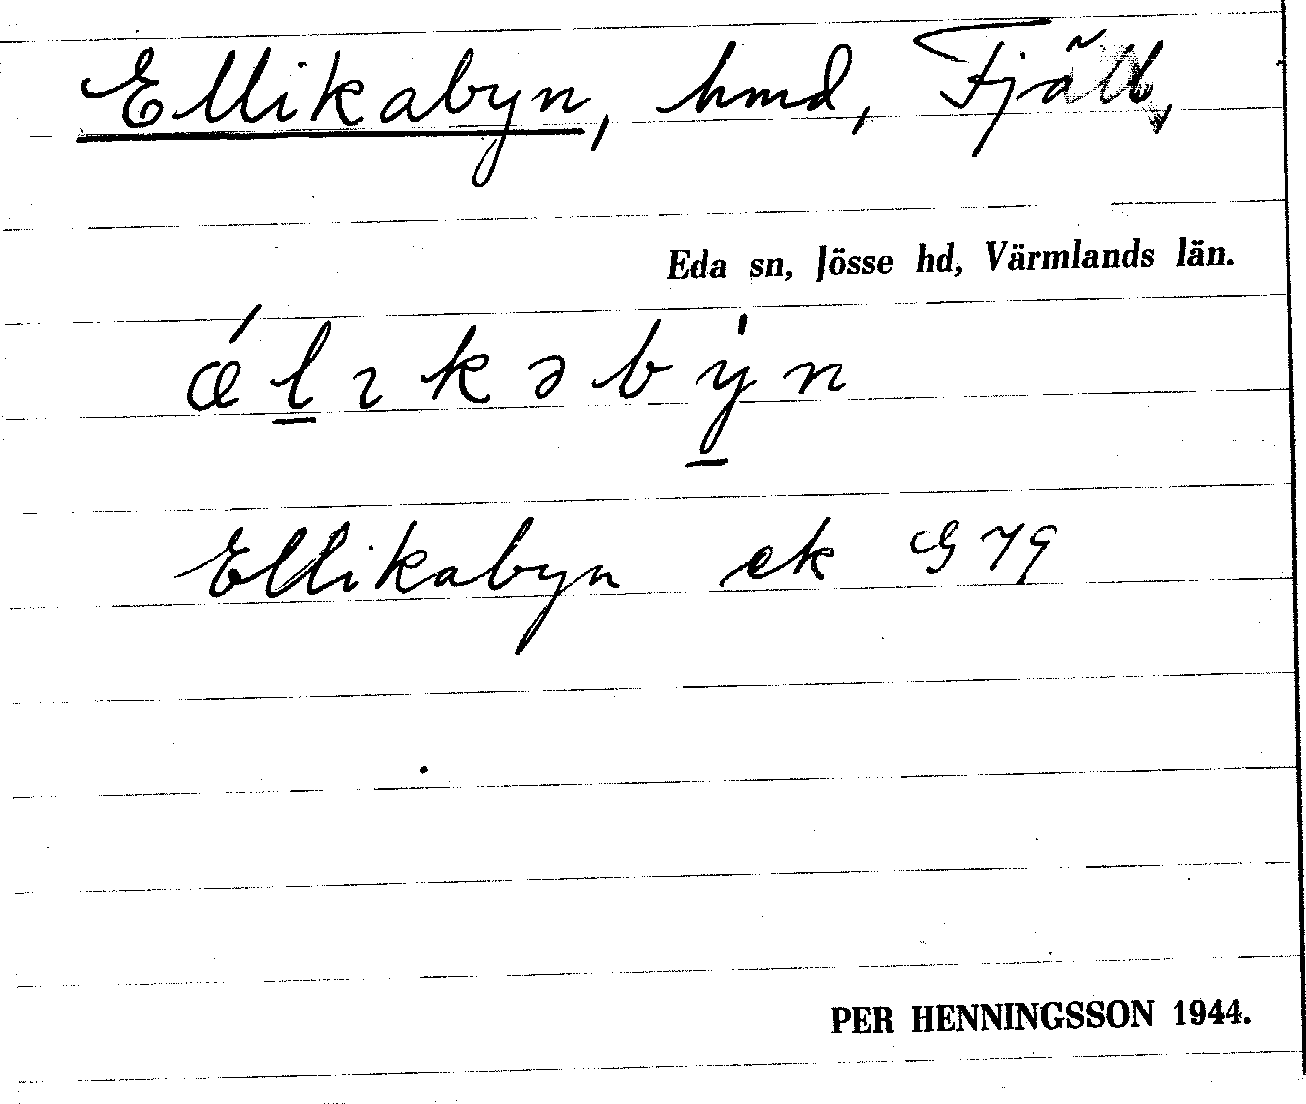 Ellikabyn, hmd, Fjäll,
Eda sn, Jösse hd, Värmlands län.
ǽl̲ıkəby̲̍n
Ellikabyn ek G 79
PER HENNINGSSON 1944.